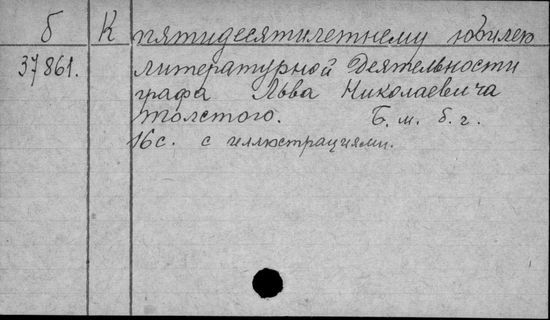 б К пятидесятилетнему юбилею
37861. литературной Деятельности
графа Льва Николаевича
Толстого. Б. м. б. г.
16 с. с иллюстрациями.